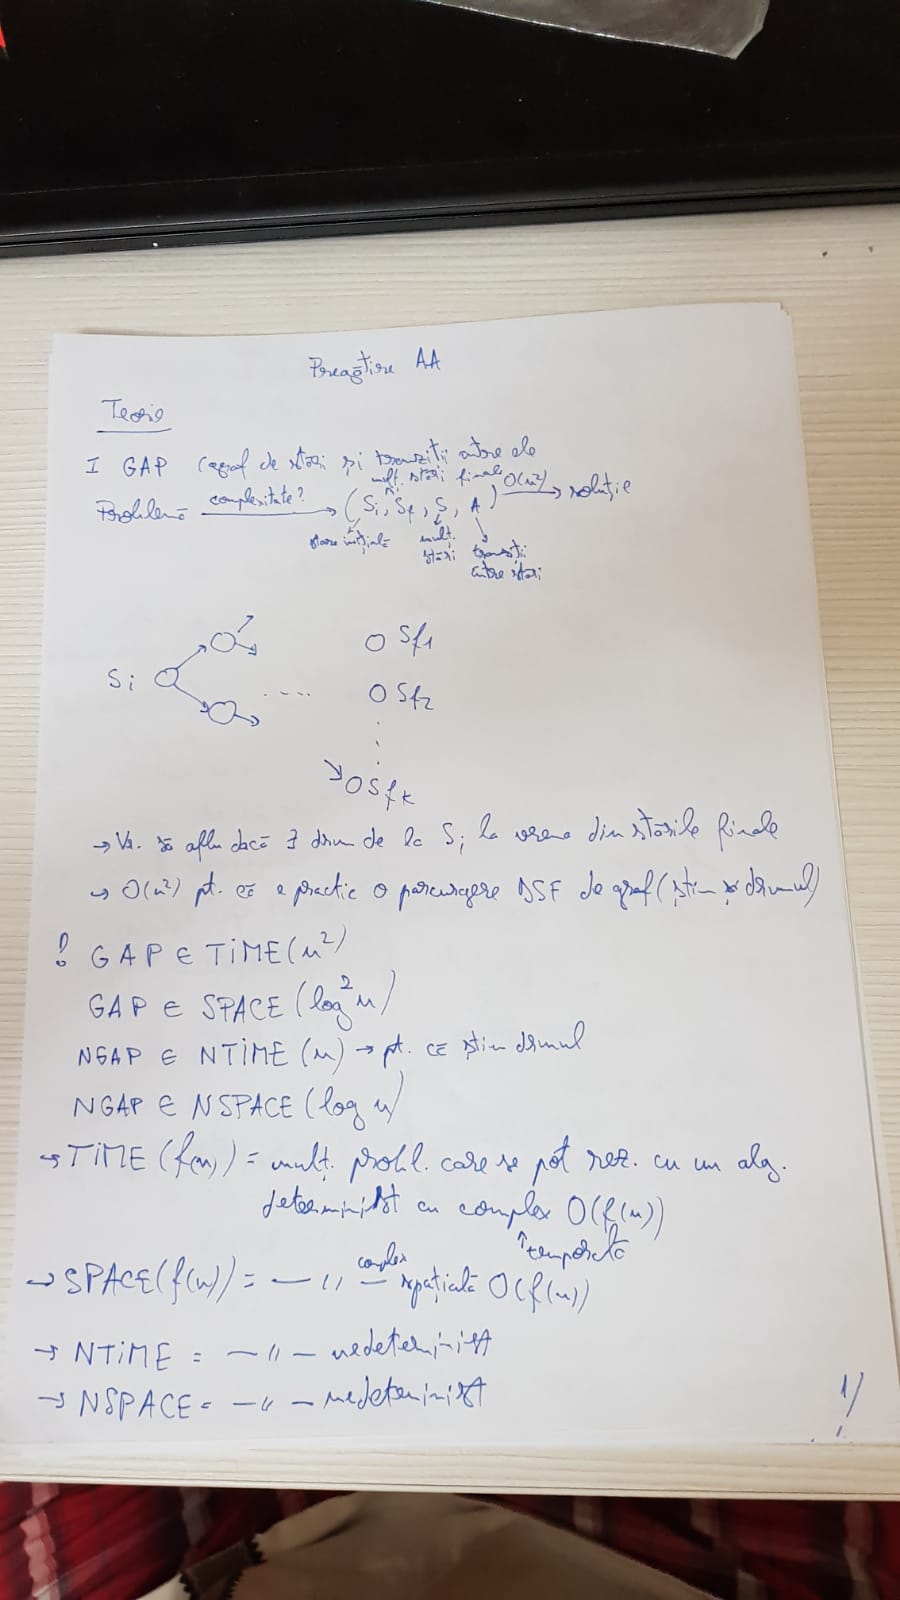 Pregătire AA
Teorie
I GAP (graf de stări și tranziții între ele
mult. stări finale
Problemă complexitate? (Si, Sf, S, A) O(n²) soluție
stare inițială mult. stări tranziții între stări
Si .... Sf1
Sf2
Sfk
→ Vr. să aflu dacă ∃ drum de la Si la vreuna din stările finale
→ O(n²) pt. că e practic o parcurgere DSF de graf (știm și drumul)
! GAP ∈ TIME(n²)
GAP ∈ SPACE(log²n)
NGAP ∈ NTIME(n) → pt. că știm drumul
NGAP ∈ NSPACE(log n)
→ TIME(f(n)) = mulț. probl. care se pot rez. cu un alg.
determinist cu complex O(f(n))
↑ temporală
→ SPACE(f(n)) = — ,, — complex spațială O(f(n))
→ NTIME = — ,, — nedeterminist
→ NSPACE = — ,, — nedeterminist
1/